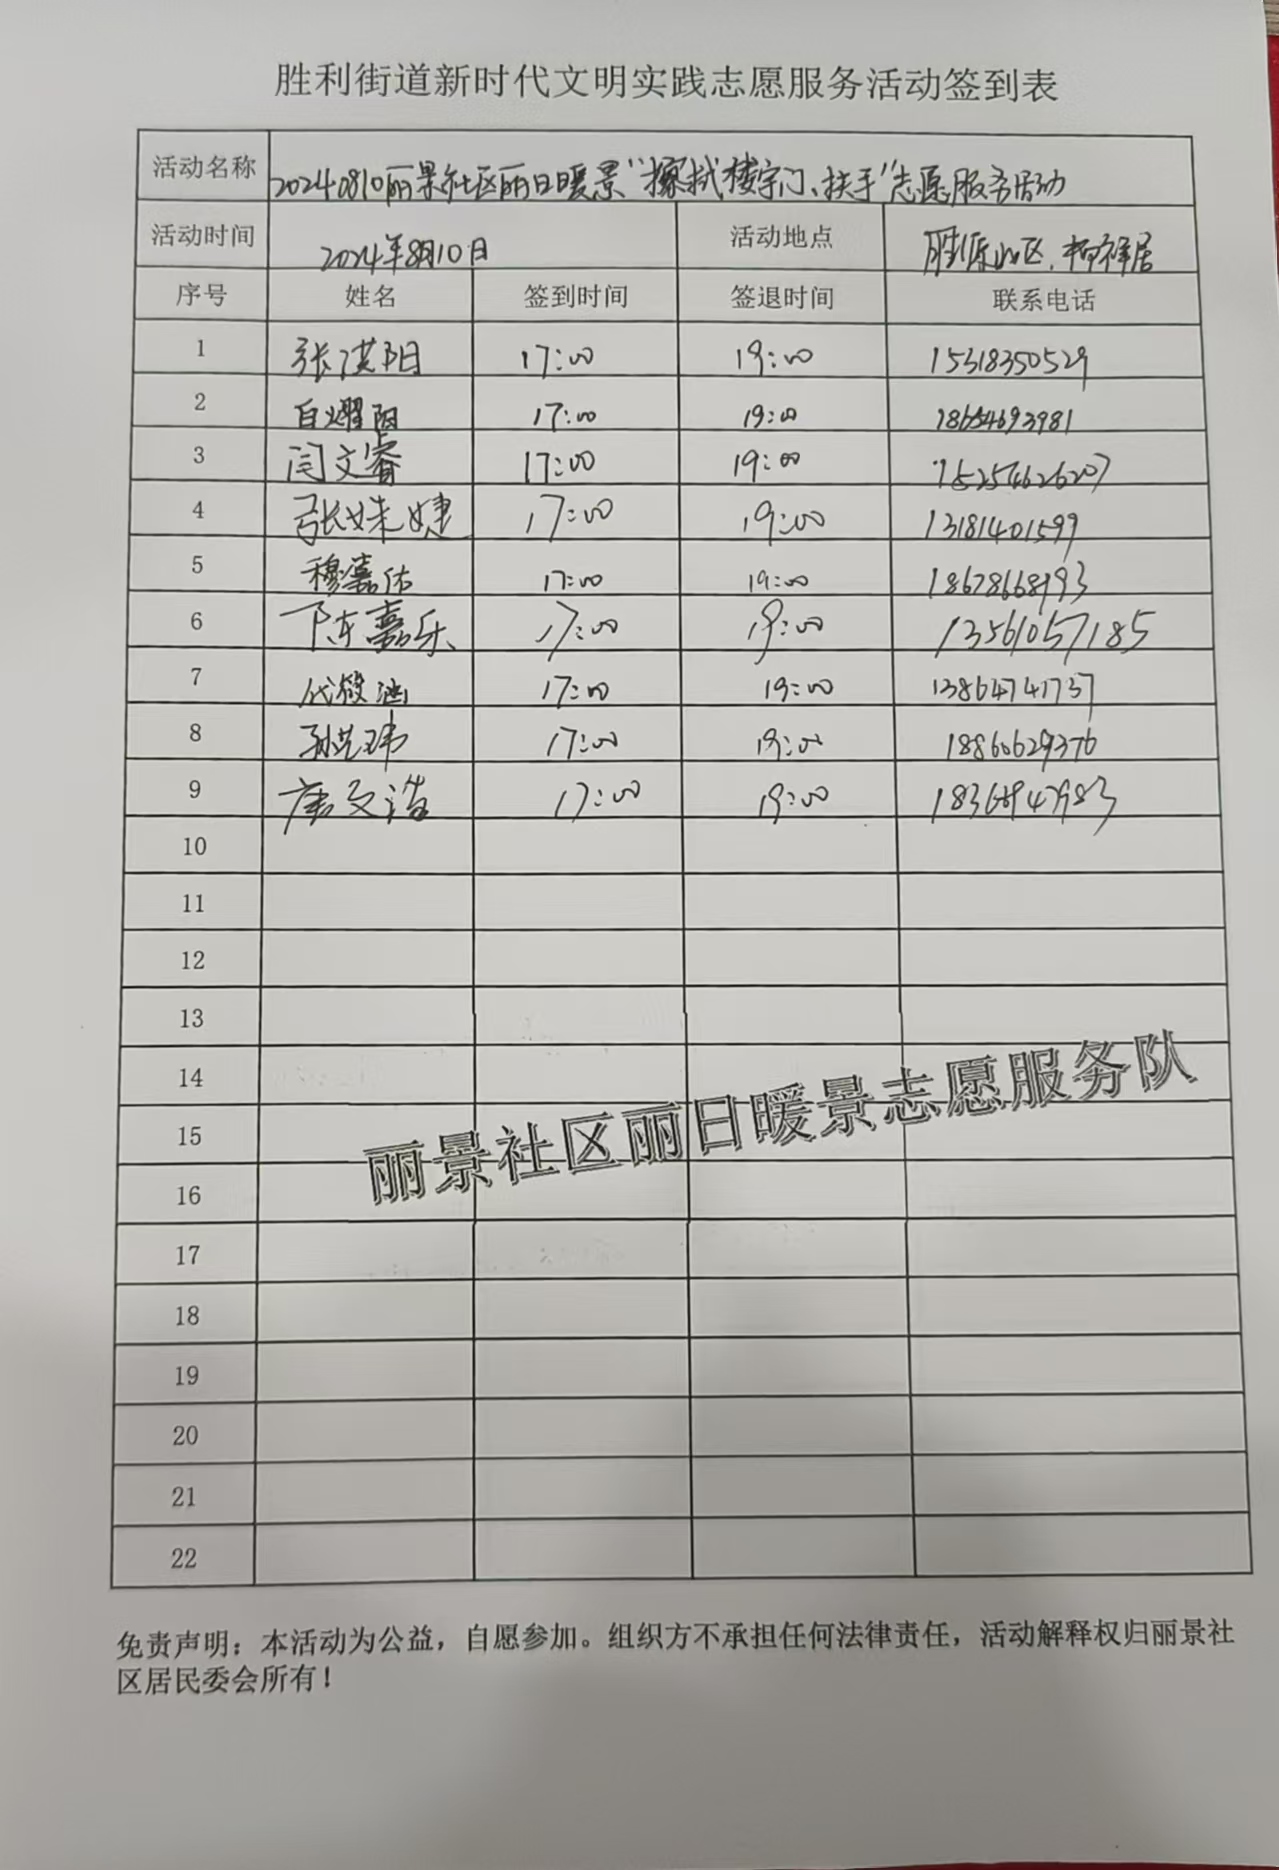 胜利街道新时代文明实践志愿服务活动签到表
活动名称 20240810丽景社区丽日暖景“擦拭楼宇门、扶手”志愿服务活动
活动时间 2024年8月10日 活动地点 胜源小区.
序号 姓名 签到时间 签退时间 联系电话
1 张淇阳 17:00 19:00 15318350529
2 白耀阳 17:00 19:00 18654693981
3 闫文睿 17:00 19:00 152574626207
4 张姝婕 17:00 19:00 13181401599
5 穆嘉佑 17:00 19:00 18678668193
6 陈嘉乐 17:00 19:00 13561057185
7 代筱涵 17:00 19:00 13864741737
8 孙艺玮 17:00 19:00 18860629376
9 唐文浩 17:00 19:00
10
11
12
13
14
15
丽景社区丽日暖景志愿服务队
16
17
18
19
20
21
22
免责声明：本活动为公益，自愿参加。组织方不承担任何法律责任，活动解释权归丽景社
区居民委会所有！